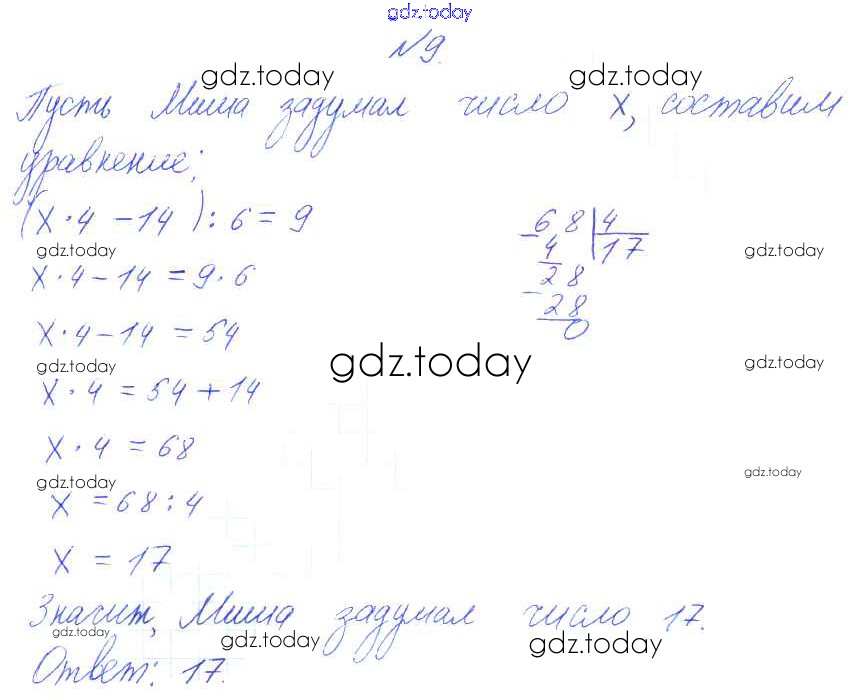 gdz.today
№9.
gdz.today gdz.today
Пусть Миша задумал число x, составим
уравнение:
(x·4-14):6=9
gdz.today gdz.today
x·4-14=9·6
x·4-14=54
gdz.today gdz.today gdz.today
x·4=54+14
x·4=68
gdz.today gdz.today
x=68:4
x=17
68 4
- 4 17
28
- 28
0
Значит, Миша задумал число 17.
gdz.today gdz.today gdz.today
Ответ: 17.